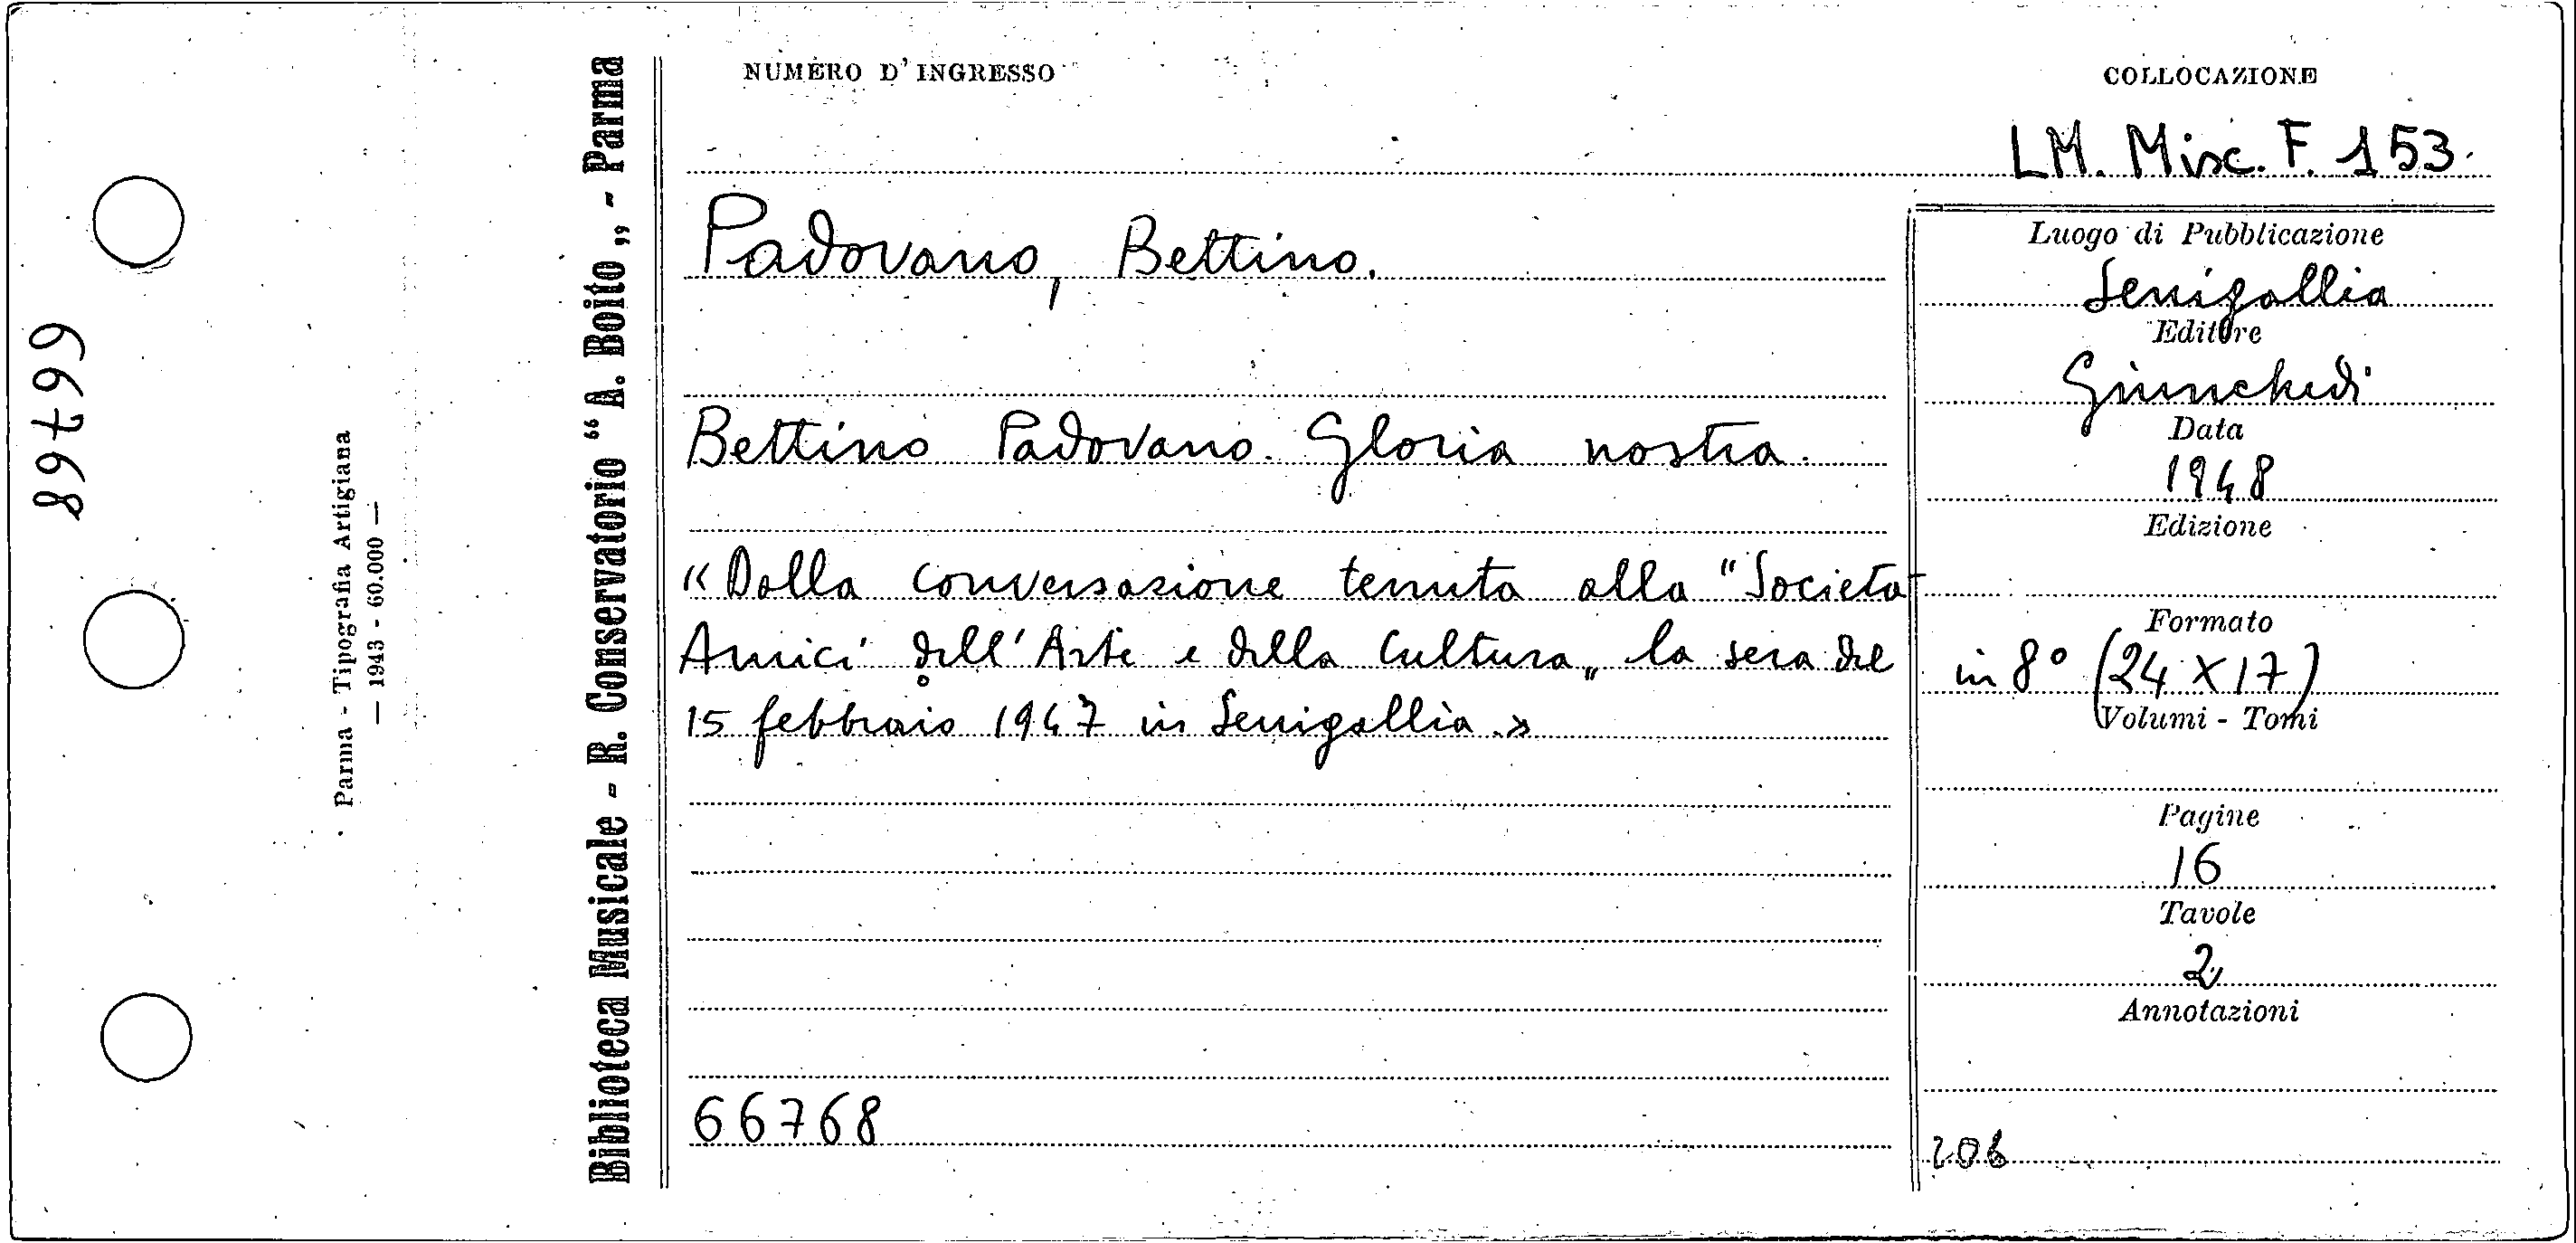 66768
Parma - Tipografia Artigiana
— 1943 - 60.000 —
Biblioteca Musicale - R. Conservatorio “A. Boito„ - Parma
NUMERO D'INGRESSO
COLLOCAZIONE
LM. Misc. F. 153.
Padovano, Bettino.
Bettino Padovano. Gloria nostra.
«Dalla conversazione tenuta alla "Società
Amici dell'Arte e della Cultura„ la sera del
15 febbraio 1947 in Senigallia.»
66768
Luogo di Pubblicazione
Senigallia
Editore
Giunchedi
Data
1948
Edizione
Formato
in 8° (24 X 17)
Volumi - Tomi
Pagine
16
Tavole
2
Annotazioni